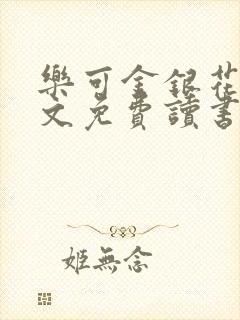 樂可金銀花
文免費讀書
姬無念